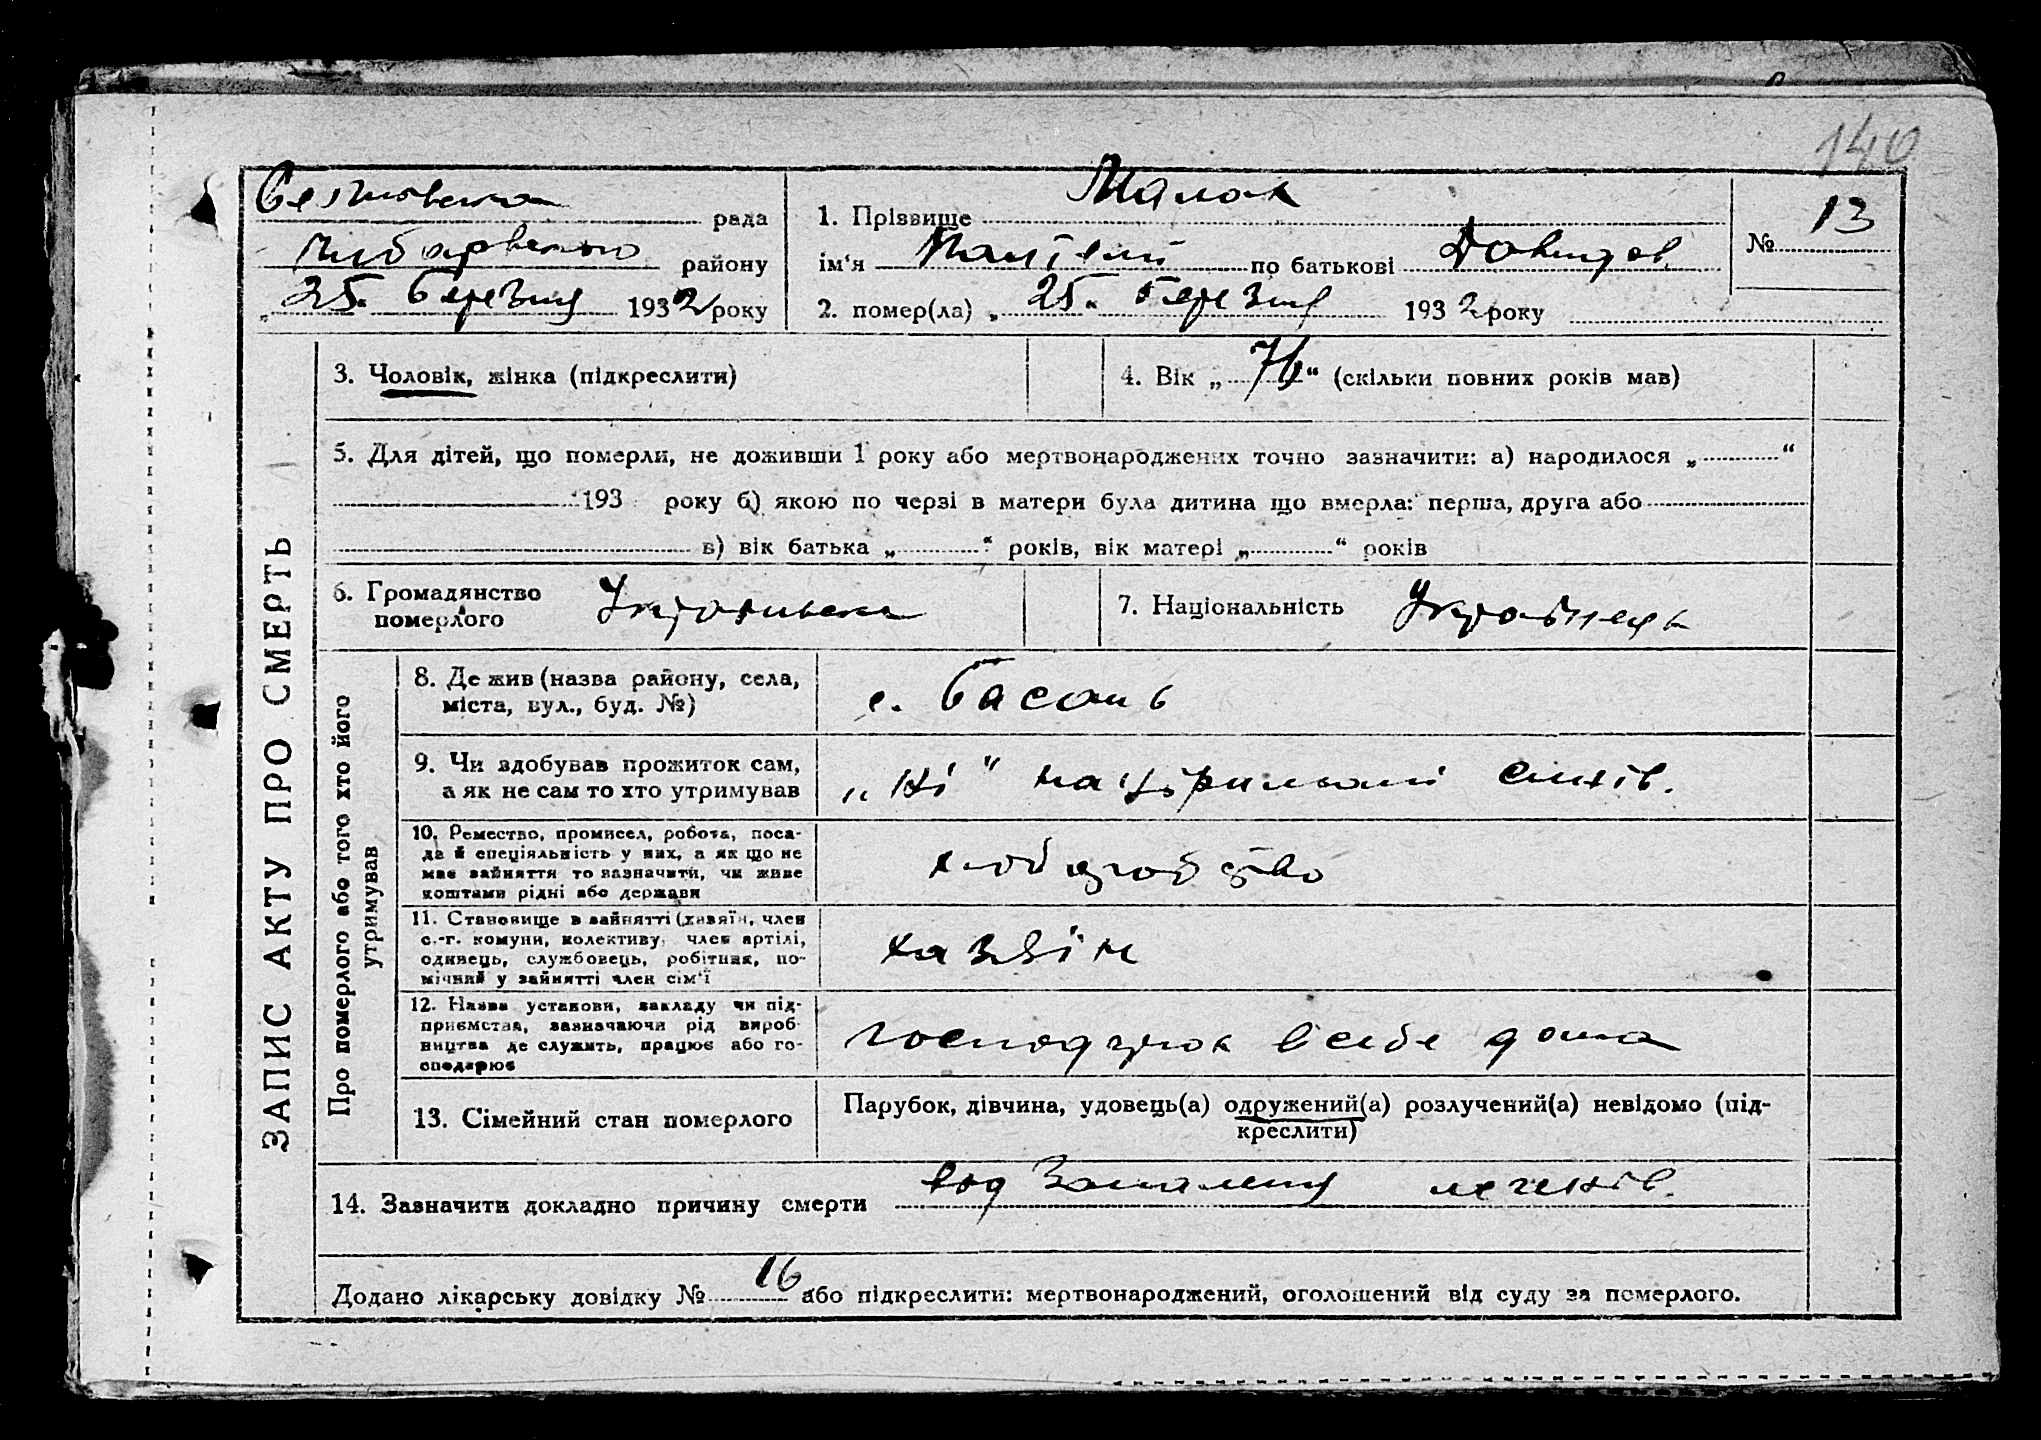 140
рада
1. Прізвище Малок
№ 13
району
ім'я по батькові Довидов
„25„ березня 1932 року
2. помер(ла) „25„ березня 1932 року
ЗАПИС АКТУ ПРО СМЕРТЬ
3. Чоловік, жінка (підкреслити)
4. Вік „76“ (скільки повних років мав)
5. Для дітей, що померли, не доживши 1 року або мертвонароджених точно зазначити: а) народилося „ “
193 року б) якою по черзі в матери була дитина що вмерла: перша, друга або
в) вік батька „ “ років, вік матері „ “ років
6. Громадянство
померлого
Українська
7. Національність Українець
Про померлого або того хто його
утримував
8. Де жив (назва району, села,
міста, вул., буд. №)
с. Басань
9. Чи здобував прожиток сам,
а як не сам то хто утримував
„ні“ на утриманні синів.
10. Ремество, промисел, робота, поса-
да й спеціяльність у них, а як що не
має зайняття то зазначити, чи живе
коштами рідні або держави
хліборобство
11. Становище в зайнятті (хазяїн, член
с.-г. комуни, колективу, член артілі,
одинець, службовець, робітник, по-
мічний у зайнятті член сім'ї
хазяїн
12. Назва установи, закладу чи під-
приємства, зазначаючи рід вироб-
ництва де служить, працює або го-
сподарює
в себе дома
13. Сімейний стан померлого
Парубок, дівчина, удовець(а) одружений(а) розлучений(а) невідомо (під-
креслити)
14. Зазначити докладно причину смерти вод Запалення легенів.
Додано лікарську довідку № 16 або підкреслити: мертвонароджений, оголошений від суду за померлого.